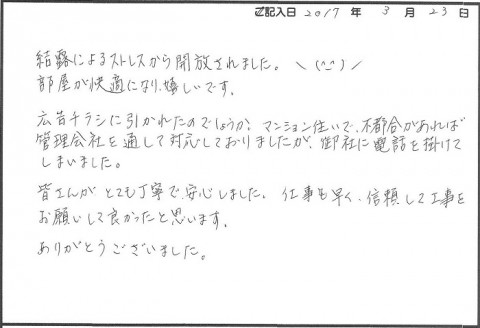 ご記入日 2017 年 3 月 23 日
結露によるストレスから開放されました。 ＼(^-^)／
部屋が快適になり、嬉しいです。
広告チラシに引かれたのでしょうか、マンション住いで、不都合があれば
管理会社を通して対応しておりましたが、御社に電話を掛けて
しまいました。
皆さんが とても丁寧で、安心しました。 仕事も早く、信頼して工事を
お願いして良かったと思います。
ありがとうございました。